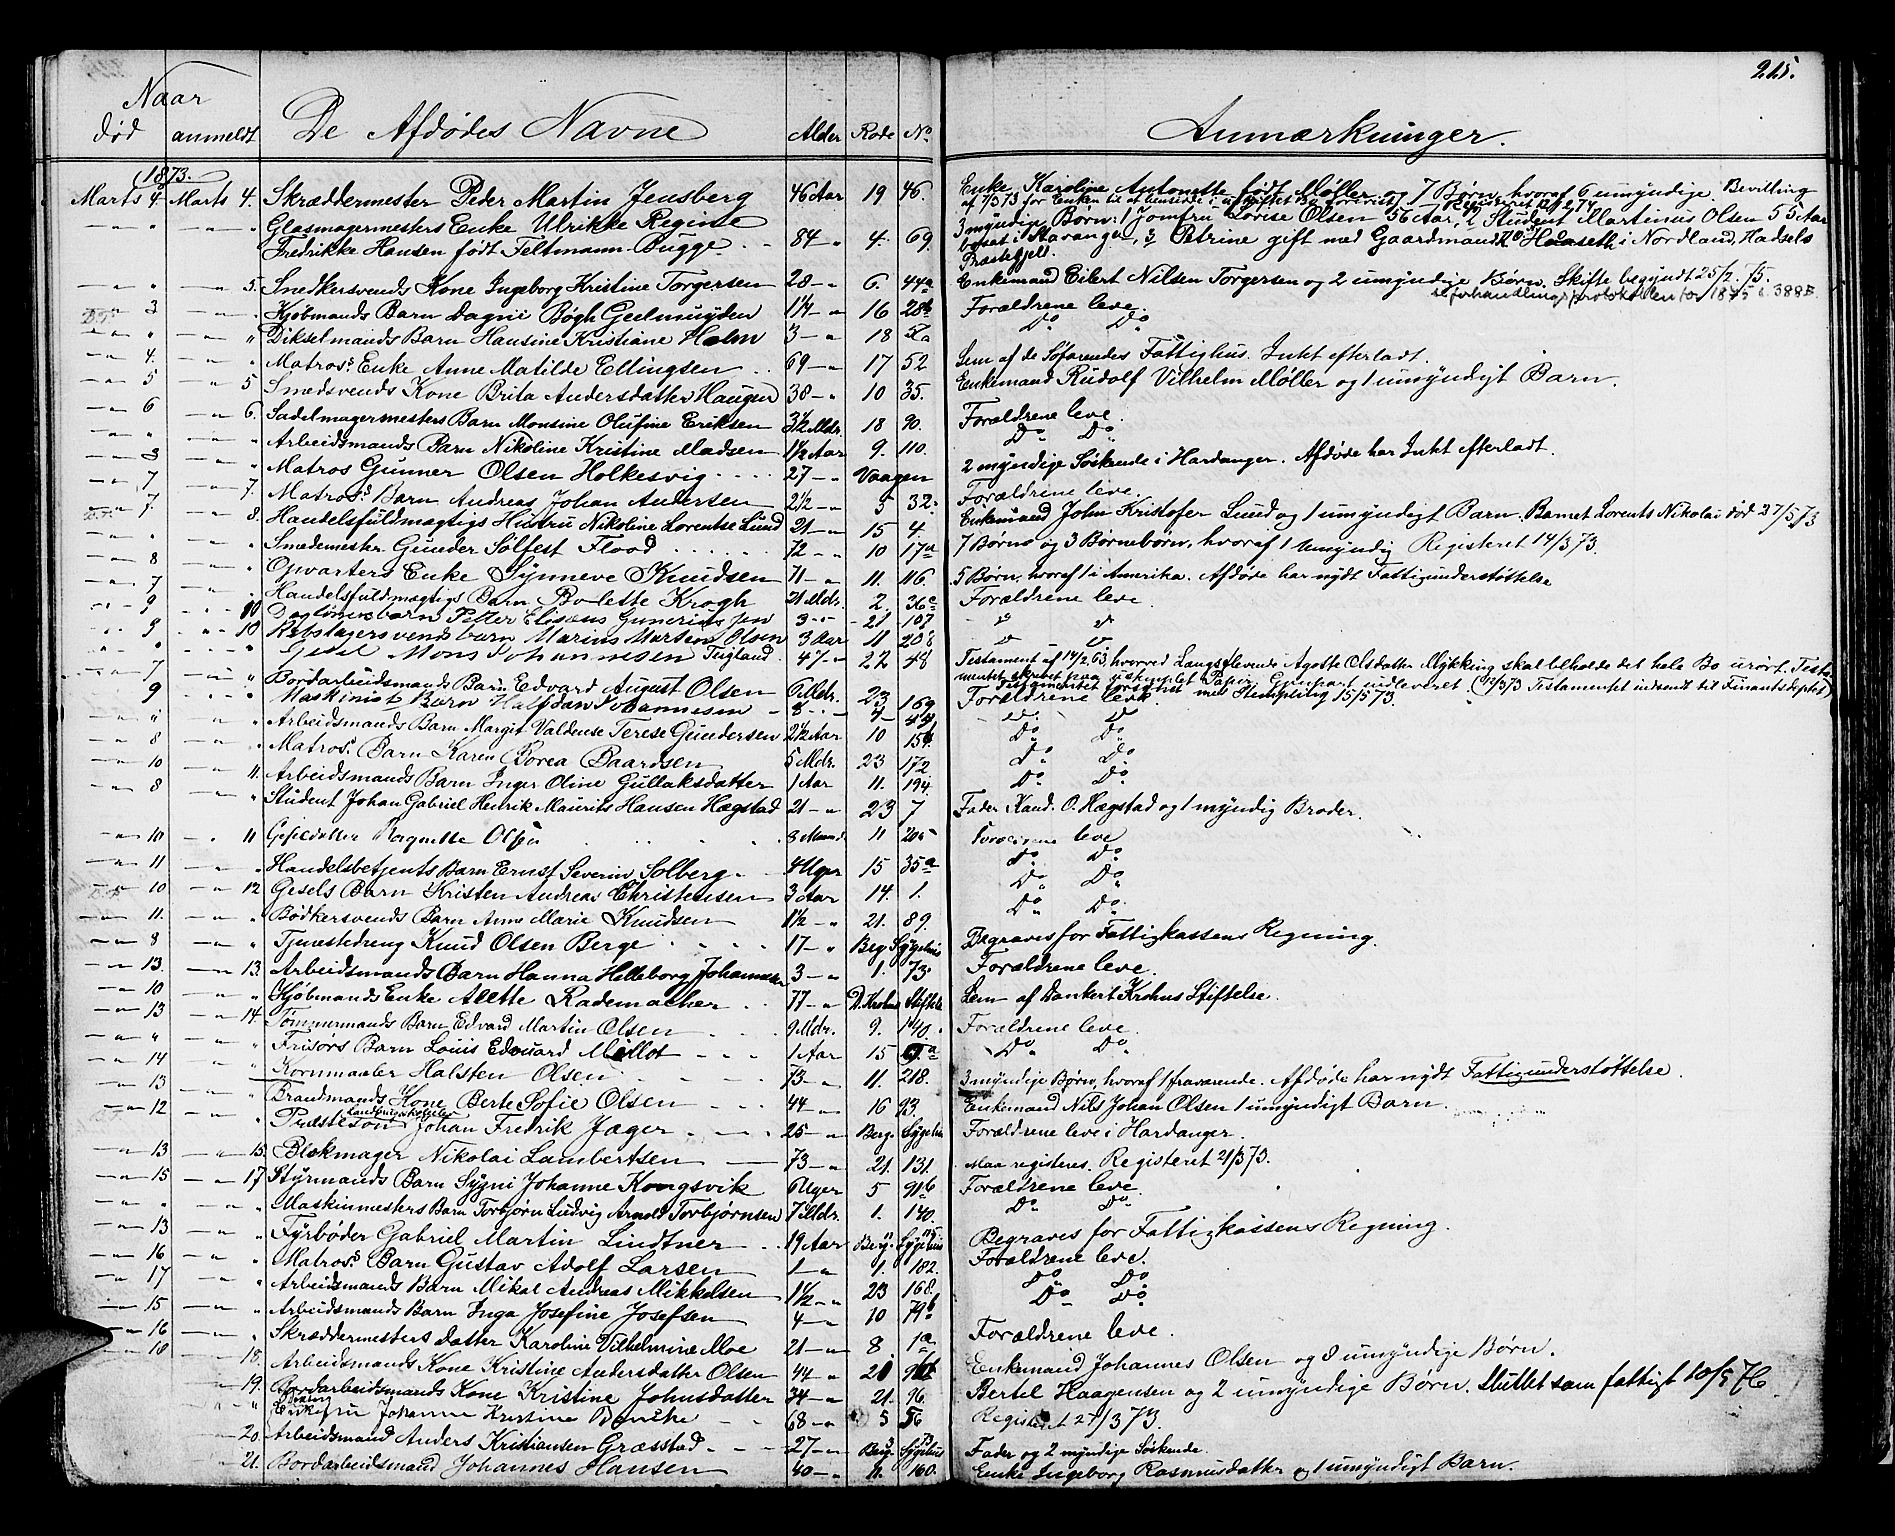 215.
Naar
død anmeldt De Afdødes Navne Alder Rode No Anmærkninger.
1873.
Marts 4. Marts 4. Skræddermester Peder Martin Jensberg 46 Aar 19 46. Enke Karoline Antonette født Møller og 7 Børn, hvoraf 6 umyndige. Bevilling
af 7/5 73 for Enken til at hensidde i uskiftet Bo
Glasmagermesters Enke Ulrikke Regine
Fredrikke Hansen født Feltmann-Bugge 84 4. 69. 3 myndige Børn: 1 Jomfru Lovise Olsen 56 Aar, 2 Student Martinus Olsen 55 Aar
boset i Stavanger, 3 Petrine gift med Gaardmand Haaseth i Nordland, Hadsels
Præstegjeld.
5. Snedkersvends Kone Ingeborg Kristine Torgersen 28 6. 44a Enkemand Eilert Nilsen Torgersen og 2 umyndige Børn. Skifte begyndt 25/2 75.
se forhandlingsprotokollen for 1875 s. 388
3 Kjøbmands Barn Dagni Bøgh Geelmuyden 1¼ 16 28b Forældrene leve.
Dikselmands Barn Hansine Kristiane Holm 3 18 Do Do
4. Matros's Enke Anne Matilde Ellingsen 69 17 52 Lem af de Søfarendes Fattighus. Intet efterladt.
5 5 Smedsvends Kone Brita Andersdatter Haugen 38 10 35. Enkemand Rudolf Vilhelm Møller og 1 umyndigt Barn.
6 6. Sadelmagermesters Barn Monsine Olufine Eriksen 3½ Mdr. 18 90. Forældrene leve.
Arbeidsmands Barn Nikoline Kristine Madsen 1½ Aar 9. 110. Do Do
3 Matros Gunner Olsen Holkesvig 27 Vaagen 2 myndige Søskende i Hardanger. Afdøde har Intet efterladt.
7 7. Matros's Barn Andreas Johan Andersen 2½ 5 32. Forældrene leve.
7. 8. Handelsfuldmægtigs Hustru Nikoline Lorentse Lund 21 15 4. Enkemand John Kristofer Lund og 1 umyndigt Barn. Barnet Lorents Nikolai død 27/5 73
Smedemester Gunder Solfest Flood 72 10 17a 7 Børn og 3 Børnebørn, hvoraf 1 umyndig Registeret 14/3 73.
8 Opvarters Enke Synneve Knudsen 71 11. 116. 5 Børn, hvoraf 1 i Amerika. Afdøde har nydt Fattigunderstøttelse
7 Handelsfuldmægtigs Barn Bolette Krogh 21 Mdr. 2. 36c Forældrene leve.
9 10 Daglønersbarn Petter Elisæus Gunerius Jen 3 21 107
9 10 Rebslagersvendsbarn Marius Martin Olsen 3 Aar 11 208
Gesel Mons Johannesen Teigland 47 22 48 Testament af 14/2 63, hvorved Længstlevende Agothe Olsdatter Mykking skal beholde det hele Bo urørt. Testa-
mentet skrevet paa ustemplet Papir. Genpart indleveret. (12/3 73 Testamentet indsendt til Finantsdeptet)
med Stempling 15/5 73.
7 Bordarbeidsmands Barn Edvard August Olsen 6 Mdr. 23 169 Forældrene leve.
9 Maskinist Barn Halfdan Johannesen 8 4
Arbeidsmands Barn Margit Valdense Terese Gundersen 2½ Aar 10 Do Do
8 Matros's Barn Karen Borea Baardsen 5 Mdr. 23 172 Do Do
10 11. Arbeidsmands Barn Inger Oline Gullaksdatter 1 Aar 11. 194. Do Do
8 Student Johan Gabriel Henrik Maurits Hansen Hægstad 21 23 7 Fader Kand. O. Hægstad og 1 myndig Broder.
10 11 Geseldatter Bergitte Olsen 8 Maand 11 205 Forældrene leve
11 Handelsbetjents Barn Ernst Severin Solberg 4 Uger 15 35a Do Do
10 12 Gesels Barn Kristen Andreas Christensen 3 Aar 14. 1. Do Do
11. Bødkersvends Barn Anne Marie Knudsen 1½ 21. 89. Do Do
8 Tjenestedreng Knud Olsen Berge 17 Berg Sygehus Begraves for Fattigkassens Regning.
13. 13. Arbeidsmands Barn Hanna Helleborg Johannesen 3 1. 73. Forældrene leve.
10 Kjøbmands Enke Alette Rademacher 77 D. Krohns Stiftelse Lem af Dankert Krohns Stiftelse.
13 14. Tømmermands Barn Edvard Martin Olsen 9 Mdr. 9. 140. Forældrene leve.
Frisørs Barn Louis Edouard Millot 1 Aar 15 Do Do
14 Kornmaaler Halsten Olsen 73 11. 218. 3 myndige Børn, hvoraf 1 fraværende. Afdøde har nydt Fattigunderstøttelse.
13 Brandmands Kone Berte Sofie Olsen 44 16 93. Enkemand Nils Johan Olsen 1 umyndigt Barn.
12 Præsteson Landbrugskandidat Johan Fredrik Jæger 25 Berg. Sygehus Forældrene leve i Hardanger.
13 15. Blokmager Nikolai Lambertsen 73 21. 131. Maa registeres. Registeret 21/3 73.
15 17. Styrmands Barn Sygni Johanne Kongsvik 6 Uger 5 91b Forældrene leve.
Maskinmesters Barn Torbjørn Ludvig Arnold Torbjørnsen 7 Mdr. 1. 140. Do Do
13 Fyrbøder Gabriel Martin Lindtner 19 Aar Berg. Sygehus Begraves for Fattigkassens Regning.
16 Matros's Barn Gustav Adolf Larsen 1 1. 182. Forældrene leve.
17 Arbeidsmands Barn Mikal Andreas Mikkelsen 1½ 23 168. Do Do
15 Arbeidsmands Barn Inga Josefine Josefsen 4 10 79b Do Do
16 Skræddermesters datter Karoline Vilhelmine Moe 21 8 1a Forældrene leve.
18 18. Arbeidsmands Kone Kristine Andersdatter Olsen 44 21 Enkemand Johannes Olsen og 8 umyndige Børn.
19. Bordarbeidsmands Kone Kristine Johnsdatter 34 21. 96. Bertel Haagensen og 2 umyndige Børn. Sluttet som fattigt 10/5 76.
Enkefru Johanne Kristine 68 5 56 Registeret 27/3 73.
20. Arbeidsmand Anders Kristiansen Græsstad 27 Berg. Sygehus Fader og 2 myndige Søskende.
21. Bordarbeidsmand Johannes Hansen 40 11. 160. Enke Ingeborg Rasmusdatter og 1 umyndigt Barn.